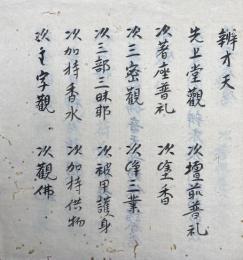 辨才天
先上堂觀 次壇前普礼
次著座普礼 次塗香
次三密觀 次浄三業
次三部三昧耶 次被甲護身
次加持香水 次加持供物
次𑖨字觀 次觀佛